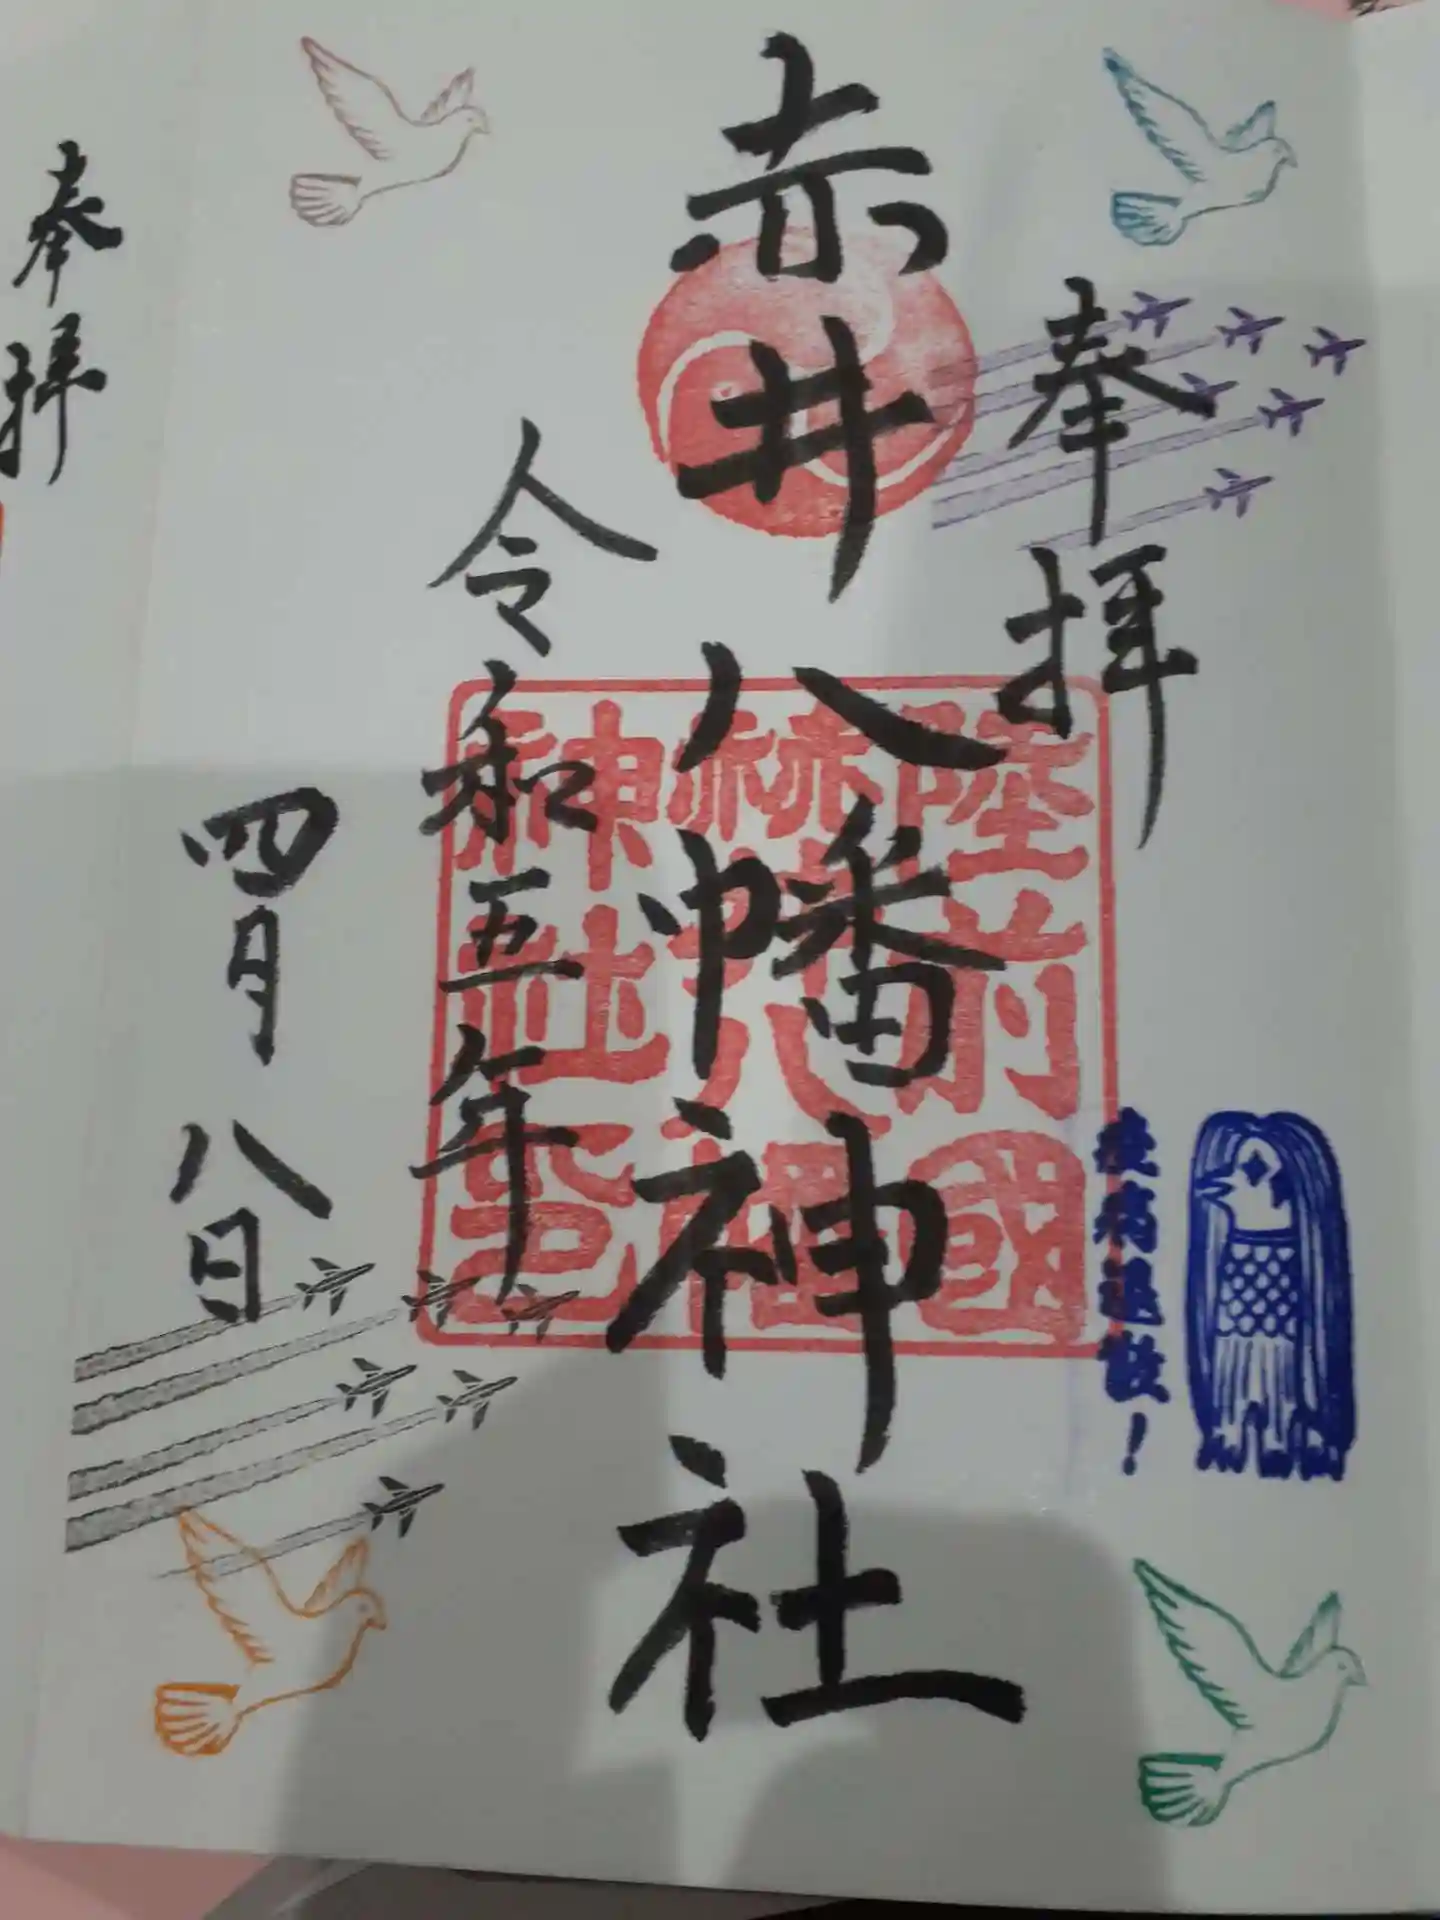 奉拝
赤井八幡神社
令和五年
四月八日
陸前國
神社
疫病退散！
奉拝